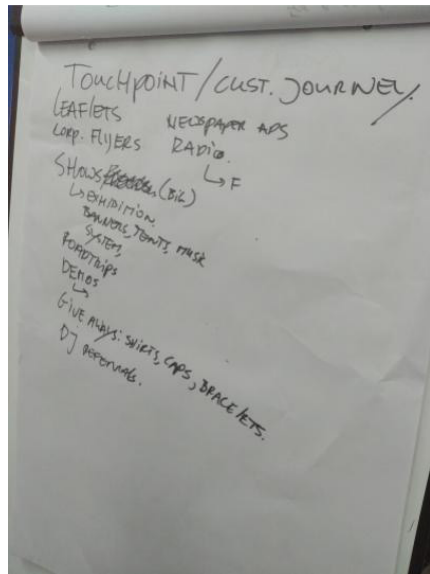 TOUCHPOINT/CUST. JOURNEY.
LEAFLETS
NEWSPAPER ADS
CORP. FLYERS
RADIO.
↳ F
SHOWS (BIL)
↳ EXHIBITION
BANNERS, TENTS, MUSK
SYSTEM,
ROADTRIPS
DEMOS
↳
GIVE AWAYS: SHIRTS, CAPS, BRACELETS.
DJ REFERRALS.